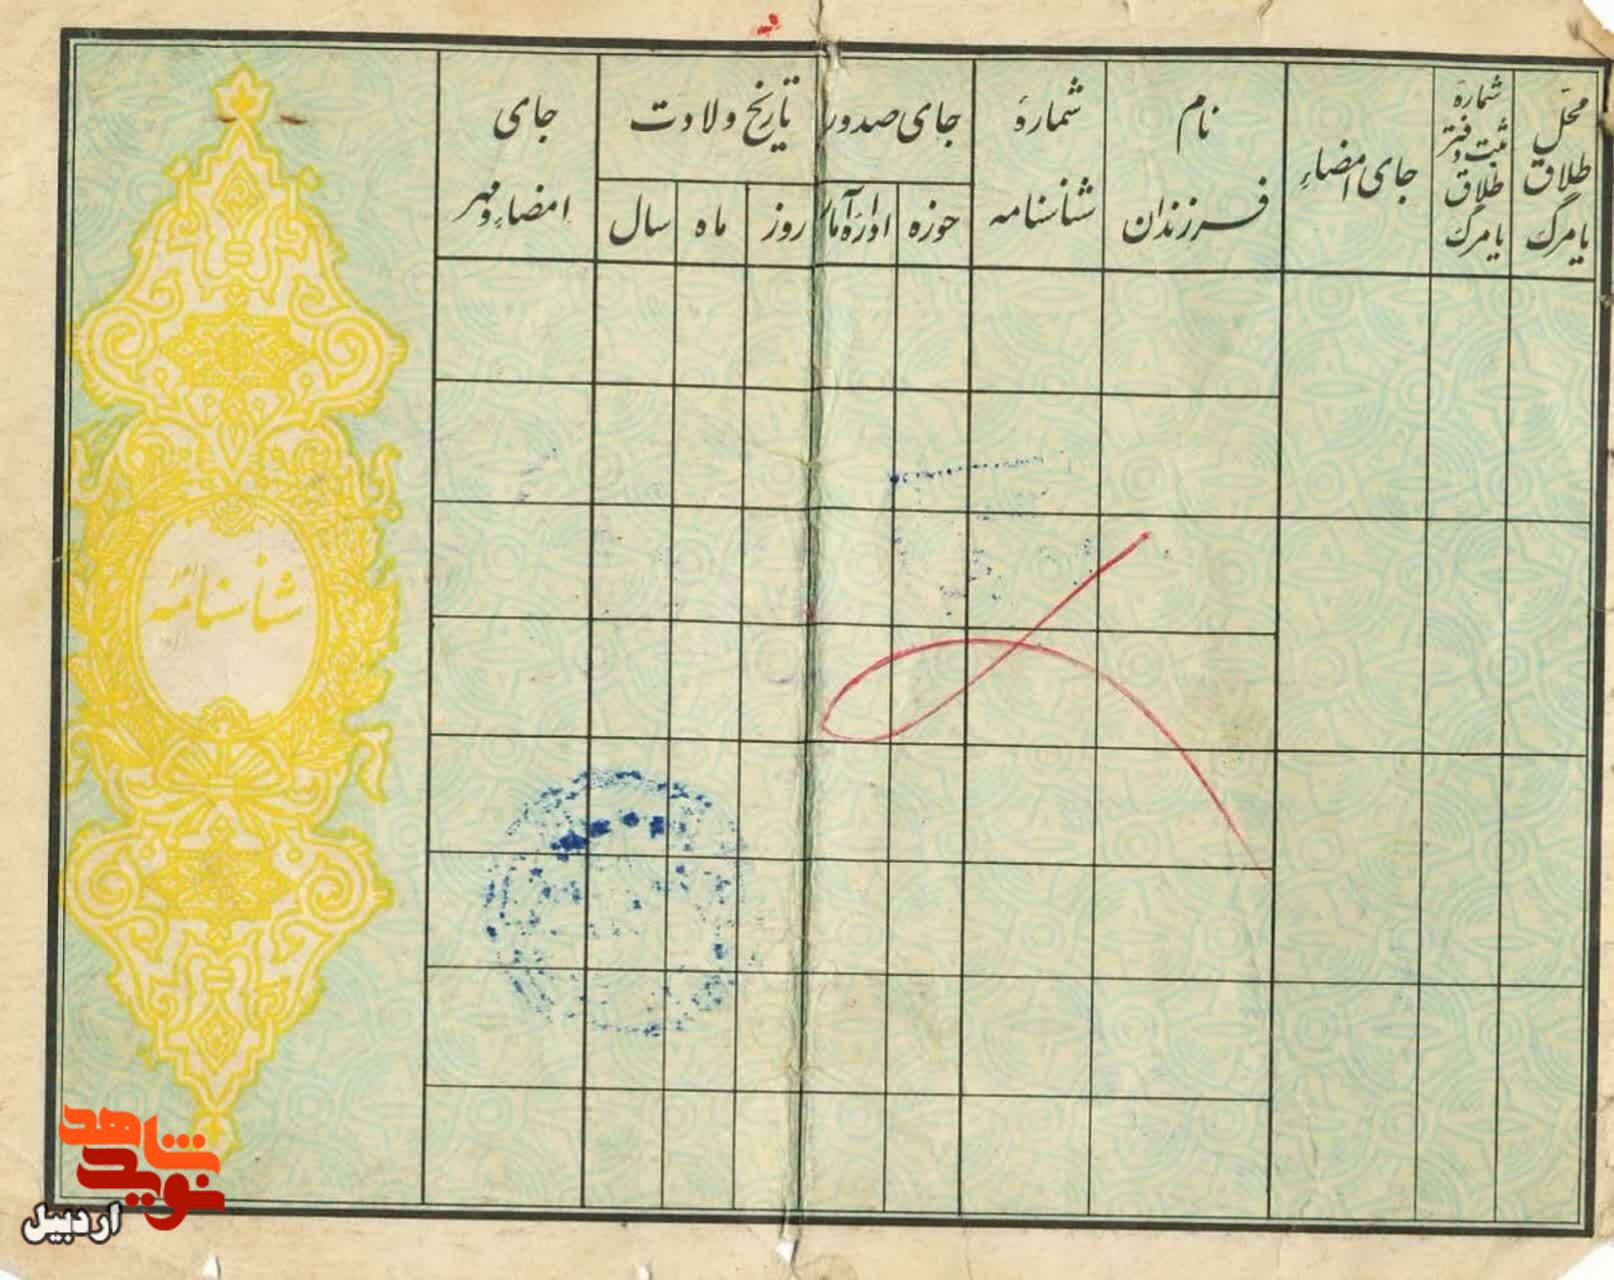 محل
طلاق
یا مرگ
شمارهٔ
ثبت دفتر
طلاق
یا مرگ
جای امضاء
نام
فرزندان
شمارهٔ
شناسنامه
جای صدور
حوزه
ادارهٔ آمار
تاریخ ولادت
روز
ماه
سال
جای
امضاء و مهر
شناسنامه
نوید شاهد
اردبیل